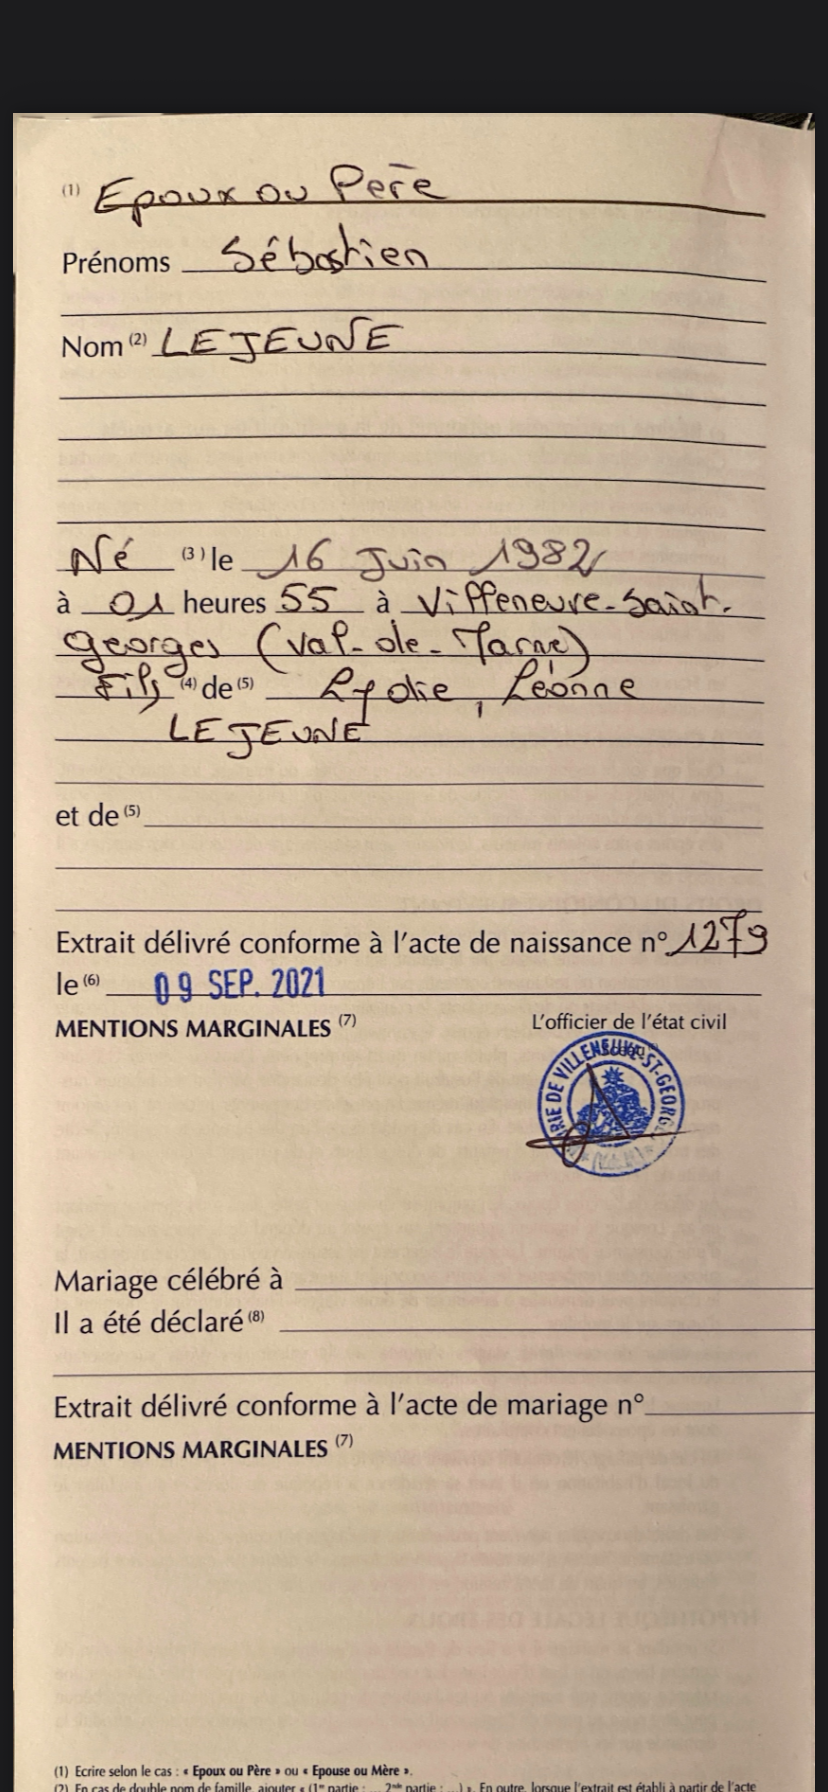 (1) Epoux ou Père
Prénoms Sébastien
Nom (2) LEJEUNE
Né (3) le 16 Juin 1982
à 01 heures 55 à Villeneuve-Saint-
Georges (Val-de-Marne)
Fils (4) de (5) Lydie, Léonne
LEJEUNE
et de (5)
Extrait délivré conforme à l'acte de naissance n° 1279
le (6) 09 SEP. 2021
MENTIONS MARGINALES (7)
L'officier de l'état civil
RIE DE VILLENEUVE-ST-GEORGE
Mariage célébré à
Il a été déclaré (8)
Extrait délivré conforme à l'acte de mariage n°
MENTIONS MARGINALES (7)
(1) Ecrire selon le cas : « Epoux ou Père » ou « Epouse ou Mère ».
(2) En cas de double nom de famille, ajouter « (1re partie : ... 2nde partie : ...) ». En outre, lorsque l'extrait est établi à partir de l'acte